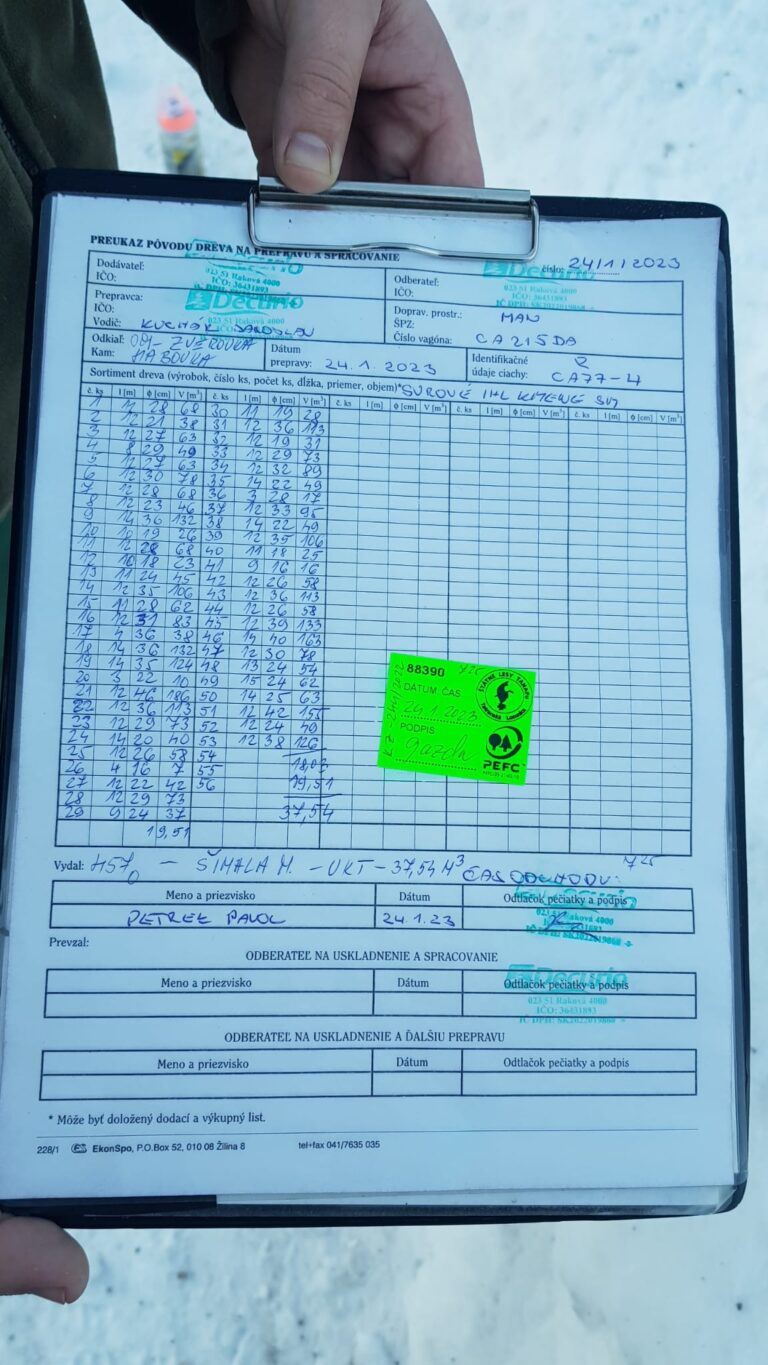 PREUKAZ PÔVODU DREVA NA PREPRAVU A SPRACOVANIE
číslo: 24/1/2023
Dodávateľ:
IČO:
023 51 Raková 4000
IČO: 36431893
Odberateľ:
IČO:
Decurio
023 51 Raková 4000
IČO: 36431893
Prepravca:
IČO:
Decurio
023 51 Raková 4000
Vodič: KUCHÁR JAROSLAV
Doprav. prostr.: MAN
ŠPZ:
Číslo vagóna: CA 215 DA
Odkiaľ: OM - ZVEROVKA
Kam: HABOVKA
Dátum
prepravy: 24. 1. 2023
Identifikačné
údaje ciachy: CA77-4
Sortiment dreva (výrobok, číslo ks, počet ks, dĺžka, priemer, objem)* SUROVÉ IHL
č. ks l [m] ϕ [cm] V [m³] č. ks l [m] ϕ [cm] V [m³] č. ks l [m] ϕ [cm] V [m³] č. ks l [m] ϕ [cm] V [m³] č. ks l [m] ϕ [cm] V [m³]
1 11 28 68 30 11 19 28
2 12 21 38 31 12 36 113
3 12 27 63 32 12 19 31
4 8 29 49 33 12 29 73
5 12 27 63 34 12 32 89
6 12 30 78 35 14 22 49
7 12 28 68 36 3 28 17
8 12 23 46 37 12 33 95
9 14 36 132 38 14 22 49
10 10 19 26 39 12 35 106
11 12 28 68 40 11 18 25
12 10 18 23 41 9 16 16
13 11 24 45 42 12 26 58
14 12 35 106 43 12 36 113
15 11 28 62 44 12 26 58
16 12 31 83 45 12 39 133
17 4 36 38 46 14 40 163
18 14 36 132 47 12 30 78
19 14 35 124 48 13 24 54
20 3 22 10 49 15 24 62
21 12 46 186 50 14 25 63
22 12 36 113 51 12 42 155
23 12 29 73 52 12 24 49
24 14 20 40 53 12 38 126
25 12 26 58 54
26 4 16 7 55 18,03
27 12 22 42 56 19,51
28 12 29 73
29 9 24 37 37,54
19,51
88390
DÁTUM, ČAS
24.1.2023
PODPIS
gazda
ŠTÁTNE LESY TANAPU
PEFC
Vydal: 457 - ŠIMALA M. - UKT - 37,54 M³ ČAS ODCHODU:
Meno a priezvisko Dátum Odtlačok pečiatky a podpis
PETREK PAVOL 24.1.23
023 51 Raková 4000
Prevzal:
ODBERATEĽ NA USKLADNENIE A SPRACOVANIE
Meno a priezvisko Dátum Odtlačok pečiatky a podpis
Decurio
023 51 Raková 4000
IČO: 36431893
IČ DPH: SK2022019868
ODBERATEĽ NA USKLADNENIE A ĎALŠIU PREPRAVU
Meno a priezvisko Dátum Odtlačok pečiatky a podpis
* Môže byť doložený dodací a výkupný list.
228/1 EkonSpo, P.O.Box 52, 010 08 Žilina 8 tel+fax 041/7635 035